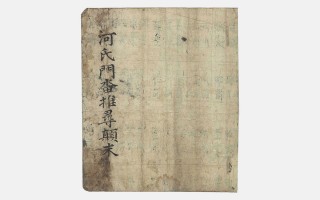 河氏門畓推尋顛末